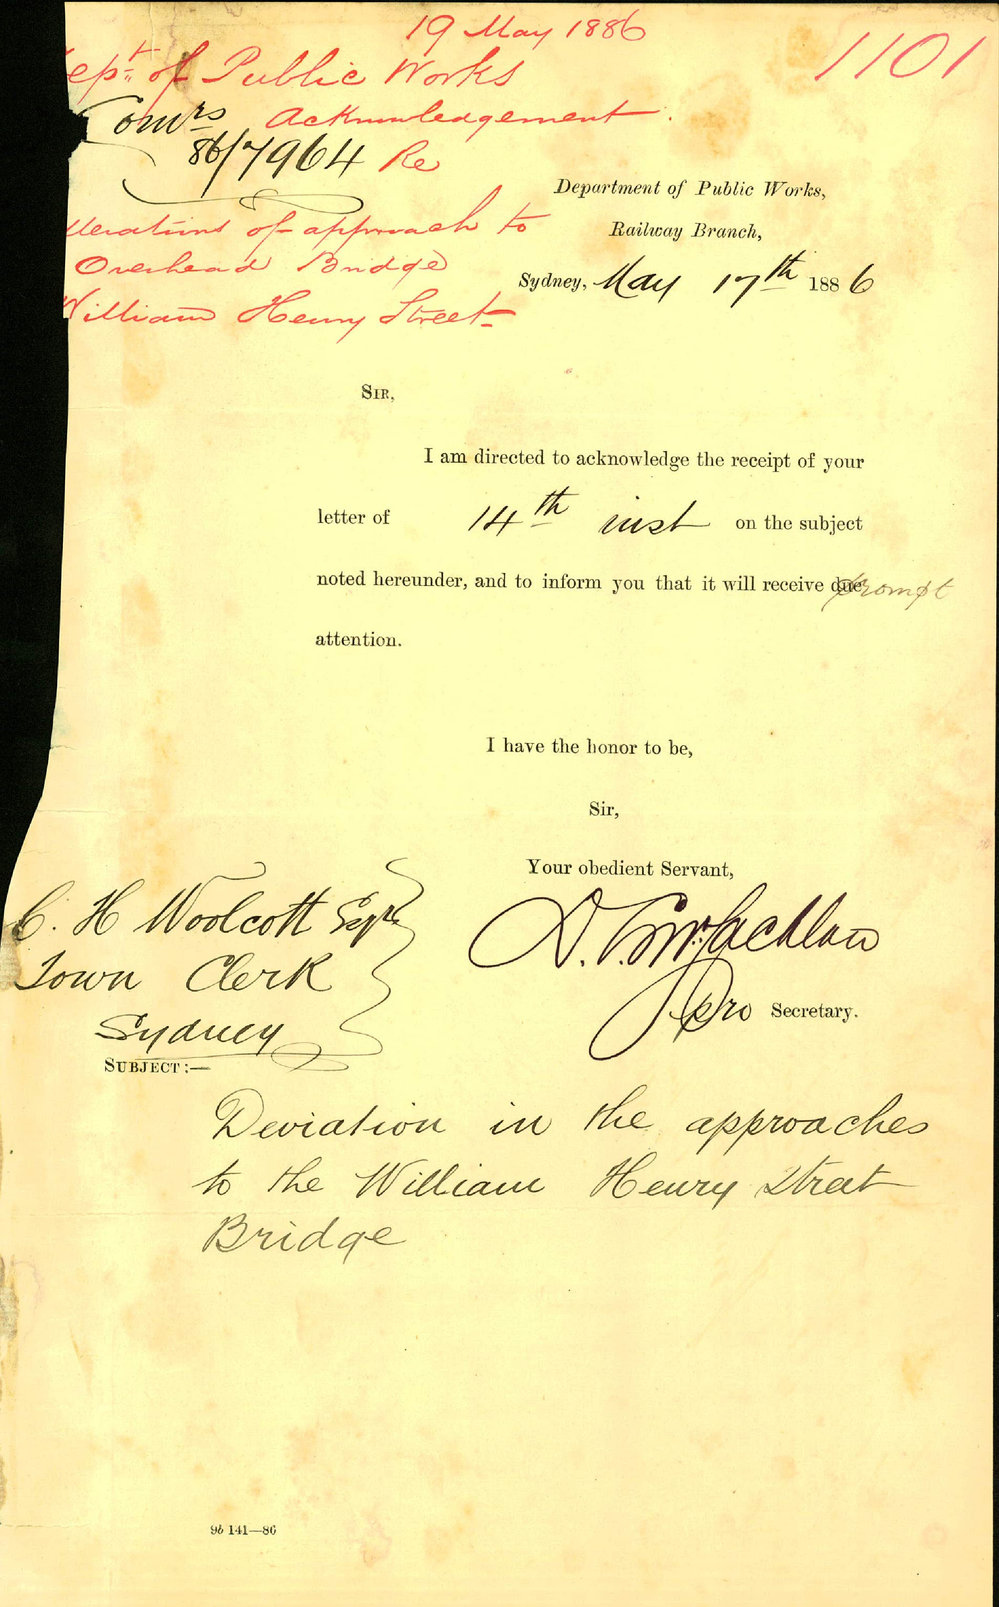 19 May 1886
1101
ept. of Public Works
Comrs Acknowledgement.
86/7964 Re
lterations of approach to
Overhead Bridge
William Henry Street
Department of Public Works,
Railway Branch,
Sydney, May 17th 1886
SIR,
I am directed to acknowledge the receipt of your
letter of 14th inst on the subject
noted hereunder, and to inform you that it will receive due prompt
attention.
I have the honor to be,
Sir,
Your obedient Servant,
C. H Woolcott Esqre
D. McLachlan
Town Clerk
pro Secretary.
Sydney
SUBJECT:—
Deviation in the approaches
to the William Henry Street
Bridge
9b 141—86